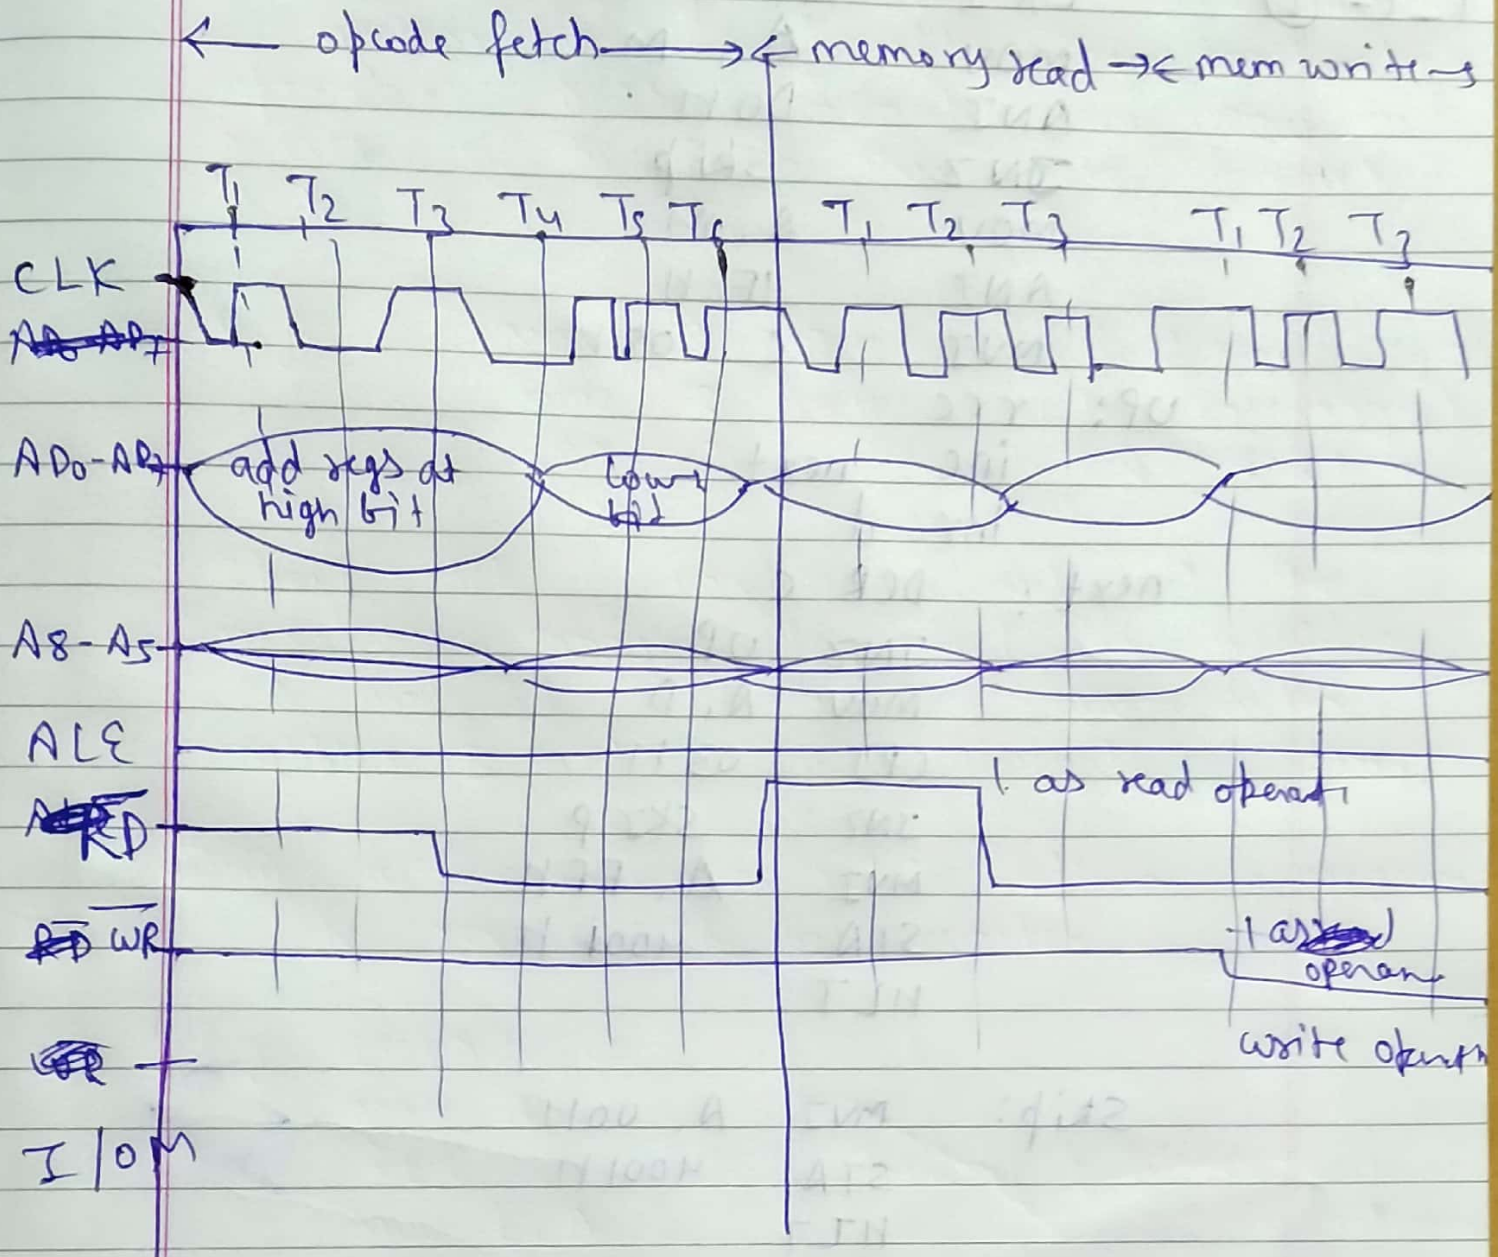 ← opcode fetch → ← memory read → ← mem write →
T1 T2 T3 T4 T5 T6 T1 T2 T3 T1 T2 T3
CLK
AD0-AD7
AD0-AD7 add regs at
high bit
lower
bit
A8-A5
ALE
1 as read operati
RD
WR
1 as
operan
write operatn
I/OM